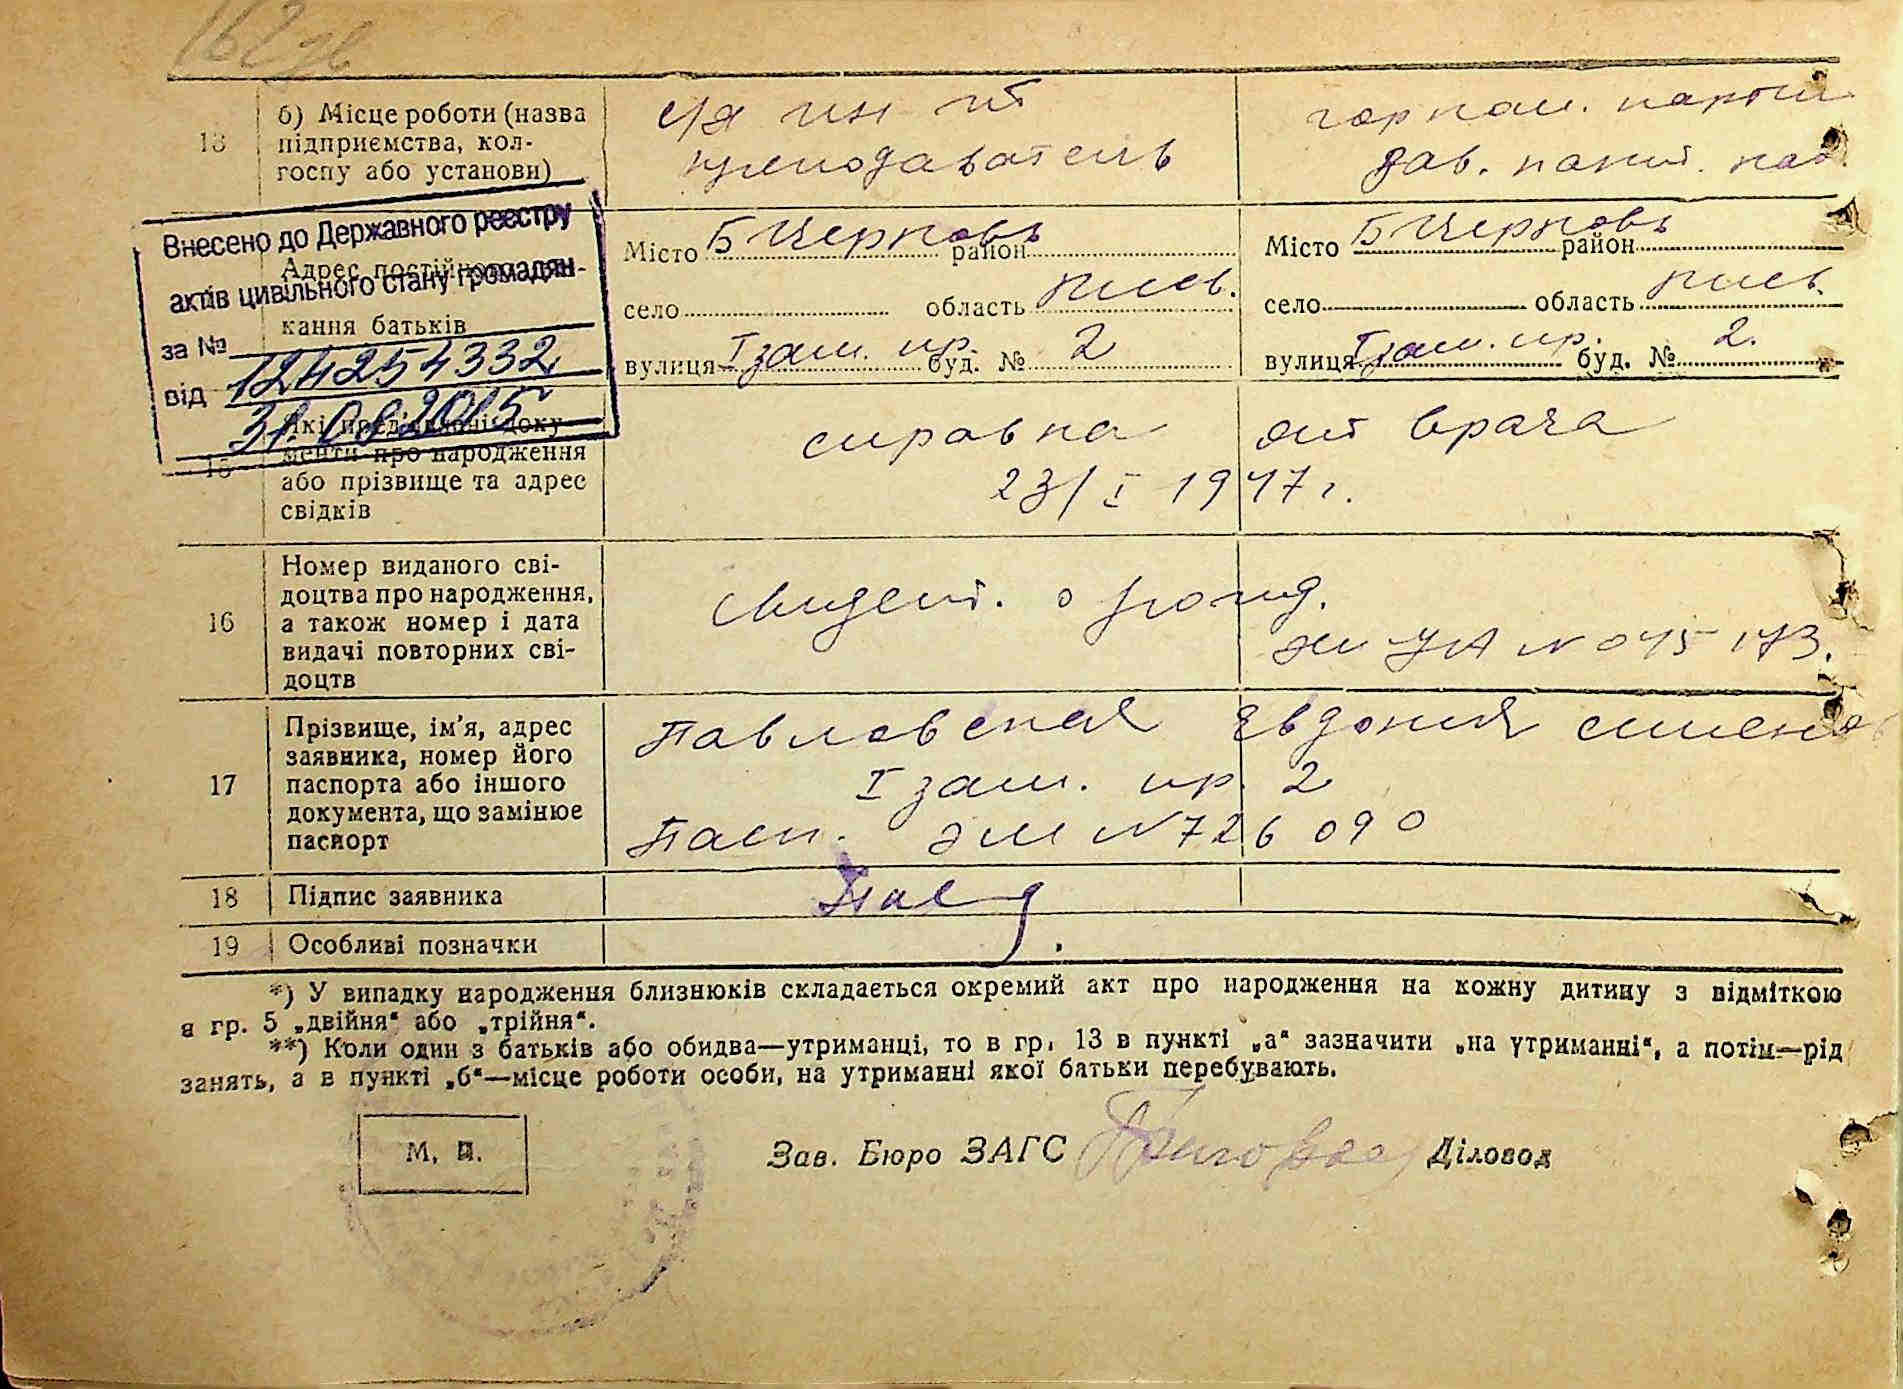 162
13
б) Місце роботи (назва
підприємства, кол-
госпу або установи)
с/х ин-т
преподаватель
зав.
Внесено до Державного реєстру
актів цивільного стану громадян
за № 124254332
від 31.08.2015
Адрес постійного
кання батьків
Місто Б Церковь район
село область Киев.
вулиця I зам. пр. буд. № 2
Місто Б Церковь район
село область Киев.
вулиця I зам. пр. буд. № 2.
15
Які пред'явлені доку-
менти про народження
або прізвище та адрес
свідків
справка от врача
23/I 1947 г.
16
Номер виданого сві-
доцтва про народження,
а також номер і дата
видачі повторних сві-
доцтв
Свидет. о рожд.
УА N 045 173.
17
Прізвище, ім'я, адрес
заявника, номер його
паспорта або іншого
документа, що замінює
паспорт
Павловская Евдокия Семенов
I зам. пр. 2
Пасп. N 726 090
18
Підпис заявника
19
Особливі позначки
*) У випадку народження близнюків складається окремий акт про народження на кожну дитину з відміткою
в гр. 5 „двійня“ або „трійня“.
**) Коли один з батьків або обидва—утриманці, то в гр. 13 в пункті „а“ зазначити „на утриманні“, а потім—рід
занять, а в пункті „б“—місце роботи особи, на утриманні якої батьки перебувають.
М. П.
Зав. Бюро ЗАГС
Діловод